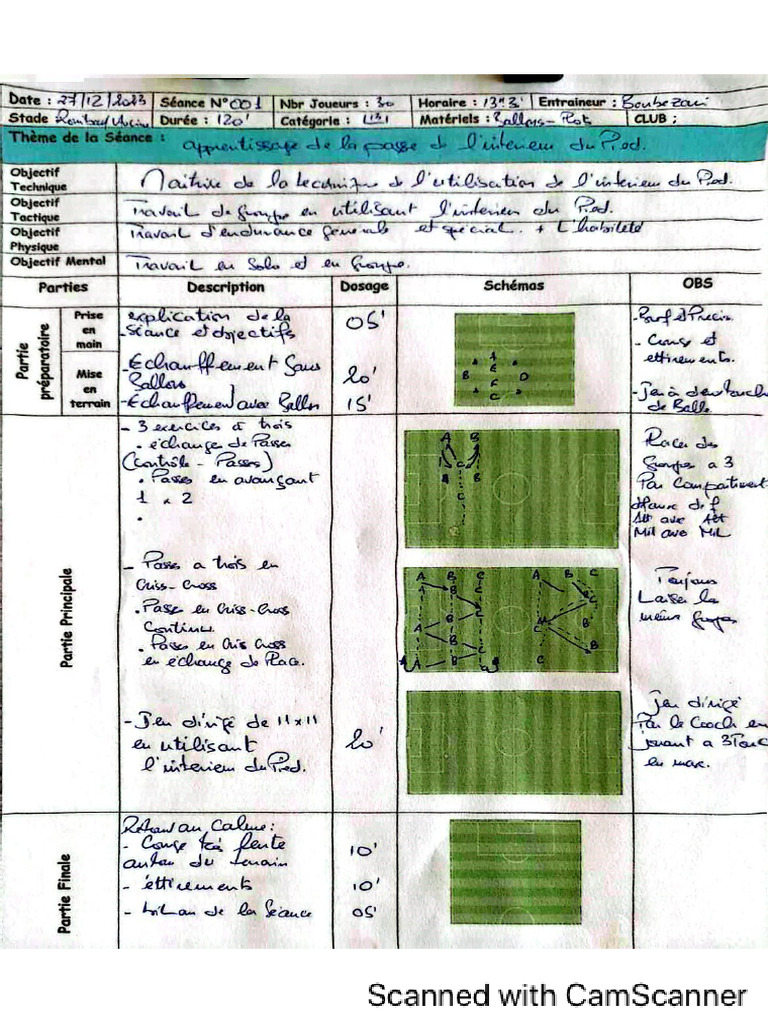 Date : 27/12/2023 Séance N° 001 Nbr Joueurs : 30 Horaire : 13H3' Entraineur : Boubezari
Stade Durée : 120' Catégorie : Matériels : Ballons - Plots CLUB :
Thème de la Séance : apprentissage de la passe de l'interieur du Pied.
Objectif
Technique Maitrise de la technique de l'utilisation de l'interieur du Pied.
Objectif
Tactique Travail de Groupe en utilisant l'interieur du Pied.
Objectif
Physique Travail d'endurance générale et spécial. + L'habileté
Objectif Mental Travail en Solo et en Groupe.
Parties Description Dosage Schémas OBS
Partie préparatoire
Prise en main
explication de la
- Séance et objectifs
05'
- Bref et Précis
Mise en terrain
- Echauffement Sans
Ballons
20'
- Echauffement avec Ballon
15'
A
B D
C
- Course et
etirements.
- Jeu à deux touches
de Balle
Partie Principale
- 3 exercices à trois
. échange de Passes
(Contrôle - Passes)
. Passes en avançant
1 x 2
.
A B
C
A B
C
Groupes a 3
Par Compartiment
Att avec Att
Mil avec Mil
- Passes a trois en
Criss-Cross
. Passe en Criss-Cross
Continu.
. Passes en Cris Cross
en échange de Place.
A B C A B C
A B
B
A C
B
A B
C
B
C
B
Toujours
Laisser les
même groupes
- Jeu dirigé de 11 x 11
en utilisant
l'interieur du Pied.
20'
Jeu dirigé
Par le Coach en
jouant a 3 Touc
en max.
Partie Finale
Retour au Calme :
- Course très lente
autour du terrain
10'
- étirements
10'
- bilan de la Séance
05'
Scanned with CamScanner